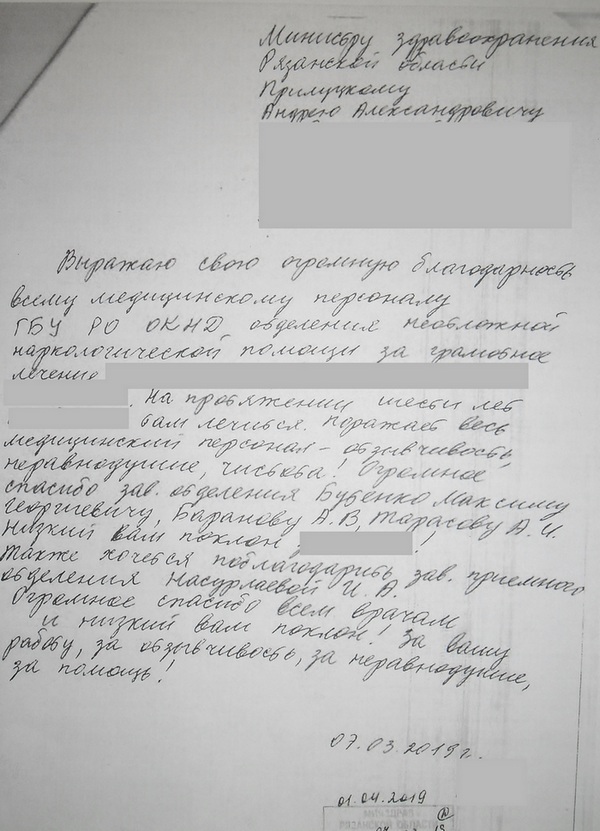 Министру здравоохранения
Рязанской области
Прилуцкому
Андрею Александровичу
Выражаю свою огромную благодарность
всему медицинскому персоналу
ГБУ РО ОКНД, отделения неотложной
наркологической помощи за грамотное
лечение
. На протяжении шести лет
вам лечится. Поражает весь
медицинский персонал - отзывчивость,
неравнодушие, чистота! Огромное
спасибо зав. отделения Бутенко Максиму
Георгиевичу, Баранову А.В, Тарасову А.И.
Низкий вам поклон !
Также хочется поблагодарить зав. приемного
отделения И. А.
Огромное спасибо всем врачам
и низкий вам поклон! За вашу
работу, за отзывчивость, за неравнодушие,
за помощь!
07.03.2019г.
01.04.2019
РЯЗАНСКОЙ ОБЛАСТИ